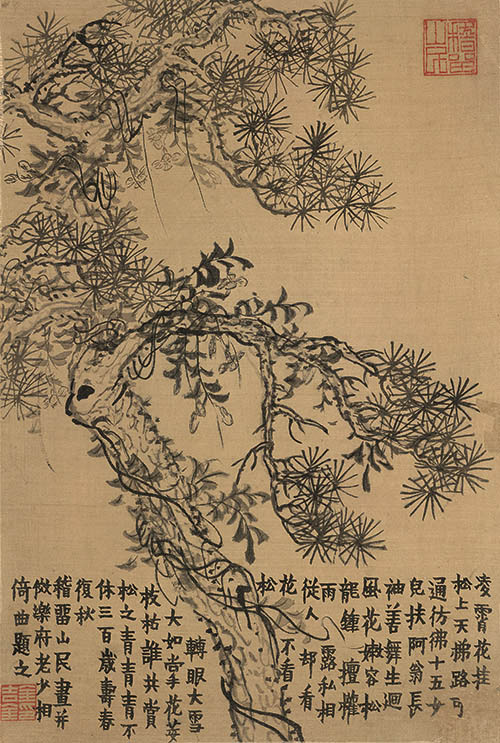 凌霄花挂
松上天梯路可
通彷彿十五女
兒扶阿翁長
袖善舞生迴
風花嫩容松
龍鍾擅權
雨露私相
從人却看
花不看
松
轉眼大雪
大如掌花萎
枝枯誰共賞
松之青青青不
休三百歲壽春
復秋
稽畱山民畫并
倣樂府老少相
倚曲題之